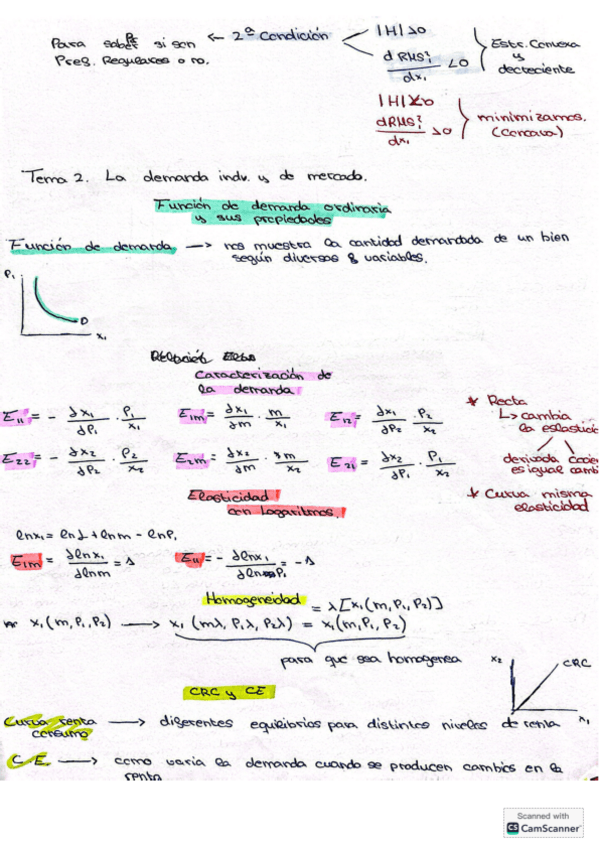 Para saber si son ← 2ª Condición
Preg. Regulares o no.
|H|>0
d RMS
dx₁
<0
Estr. Convexa
y
decreciente
|H|<0
dRMS
dx₁
>0
minimizamos.
(concava)
Tema 2. La demanda indv. y de mercado.
Función de demanda ordinaria
y sus propiedades
Función de demanda → nos muestra la cantidad demandada de un bien
según diversos variables.
P₁
D
x₁
Caracterización de
la demanda
E₁₁ = - ∂x₁/∂P₁ · P₁/x₁
E₁m = ∂x₁/∂m · m/x₁
E₁₂ = ∂x₁/∂P₂ · P₂/x₂
E₂₂ = - ∂x₂/∂P₂ · P₂/x₂
E₂m = ∂x₂/∂m · m/x₂
E₂₁ = ∂x₂/∂P₁ · P₁/x₂
* Recta
↳ cambia
la
derivada
es igual
* Curva misma
elasticidad
Elasticidad
con logaritmos.
lnx₁ = ln + lnm - lnP₁
E₁m = ∂lnx₁/∂lnm = 1
E₁₁ = - ∂lnx₁/∂lnP₁ = -1
Homogeneidad
= λ[x₁(m,P₁,P₂)]
x₁(m,P₁,P₂) → x₁(mλ,P₁λ,P₂λ) = x₁(m,P₁,P₂)
para que sea homogenea
x₂
CRC
x₁
CRC y CE
Curva renta
consumo
→ diferentes equilibrios para distintos niveles de renta
C.E. → como varia la demanda cuando se producen cambios en la
renta
Scanned with
CS CamScanner